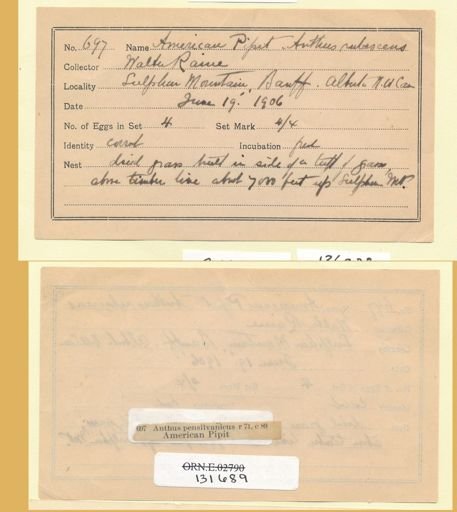 No. 697 Name American Pipit. Anthus rubescens
Collector Walter Raine
Locality Sulphur Mountain, Banff. Alberta N.W. Can
Date June 19. 1906
No. of Eggs in Set 4 Set Mark 4/4
Identity correct Incubation fresh
Nest dried grass built in side of a tuft of grass,
above timber line about 7000 feet up Sulphur Mt.
697 Anthus pensilvanicus r 71, c 89
American Pipit
ORN.E.02790
131689